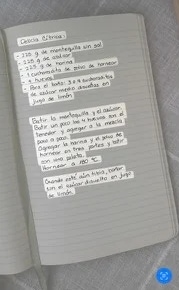 Delicia Cítrica:
- 225 g. de mantequilla sin sal
- 225 g. de azúcar
- 225 g. de harina
- 1 cucharadita de polvo de hornear
- 4 huevos
- Para el baño: 3 a 4 cucharadas
de azúcar medio disueltas en
jugo de limón
Batir la mantequilla y el azúcar.
Batir un poco los 4 huevos con el
tenedor y agregar a la mezcla
poco a poco.
Agregar la harina y el polvo de
hornear en tres partes y batir
con una paleta.
Hornear a 180 °C.
Cuando esté aún tibia,
con el azúcar disuelto en jugo
de limón.